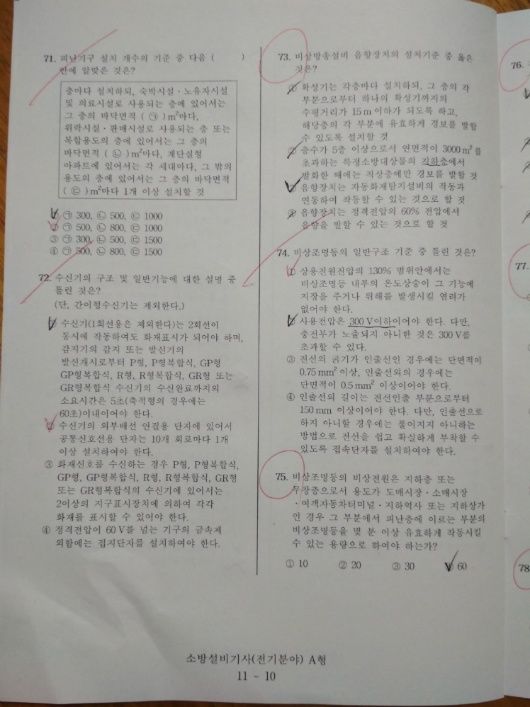 71. 피난기구 설치 개수의 기준 중 다음 (      )
안에 알맞은 것은?
층마다 설치하되, 숙박시설·노유자시설
및 의료시설로 사용되는 층에 있어서는
그 층의 바닥면적 ( ㉠ )m²마다,
위락시설·판매시설로 사용되는 층 또는
복합용도의 층에 있어서는 그 층의
바닥면적 ( ㉡ )m²마다, 계단실형
아파트에 있어서는 각 세대마다, 그 밖의
용도의 층에 있어서는 그 층의 바닥면적
( ㉢ )m²마다 1개 이상 설치할 것
① ㉠ 300, ㉡ 500, ㉢ 1000
② ㉠ 500, ㉡ 800, ㉢ 1000
③ ㉠ 300, ㉡ 500, ㉢ 1500
④ ㉠ 500, ㉡ 800, ㉢ 1500
72. 수신기의 구조 및 일반기능에 대한 설명 중
틀린 것은?
(단, 간이형수신기는 제외한다.)
수신기(1회선용은 제외한다)는 2회선이
동시에 작동하여도 화재표시가 되어야 하며,
감지기의 감지 또는 발신기의
발신개시로부터 P형, P형복합식, GP형
GP형복합식, R형, R형복합식, GR형 또는
GR형복합식 수신기의 수신완료까지의
소요시간은 5초(축적형의 경우에는
60초)이내이어야 한다.
② 수신기의 외부배선 연결용 단자에 있어서
공통신호선용 단자는 10개 회로마다 1개
이상 설치하여야 한다.
③ 화재신호를 수신하는 경우 P형, P형복합식,
GP형, GP형복합식, R형, R형복합식, GR형
또는 GR형복합식의 수신기에 있어서는
2이상의 지구표시장치에 의하여 각각
화재를 표시할 수 있어야 한다.
④ 정격전압이 60V를 넘는 기구의 금속제
외함에는 접지단자를 설치하여야 한다.
73. 비상방송설비 음향장치의 설치기준 중 옳은
것은?
① 확성기는 각층마다 설치하되, 그 층의 각
부분으로부터 하나의 확성기까지의
수평거리가 15m이하가 되도록 하고,
해당층의 각 부분에 유효하게 경보를 발할
수 있도록 설치할 것
② 층수가 5층 이상으로서 연면적이 3000m²를
초과하는 특정소방대상물의 지하층에서
발화한 때에는 직상층에만 경보를 발할 것
음향장치는 자동화재탐지설비의 작동과
연동하여 작동할 수 있는 것으로 할 것
④ 음향장치는 정격전압의 60% 전압에서
음향을 발할 수 있는 것으로 할 것
74. 비상조명등의 일반구조 기준 중 틀린 것은?
① 상용전원전압의 130% 범위안에서는
비상조명등 내부의 온도상승이 그 기능에
지장을 주거나 위해를 발생시킬 염려가
없어야 한다.
사용전압은 300V이하이어야 한다. 다만,
충전부가 노출되지 아니한 것은 300V를
초과할 수 있다.
③ 전선의 굵기가 인출선인 경우에는 단면적이
0.75mm² 이상, 인출선외의 경우에는
단면적이 0.5mm² 이상이어야 한다.
④ 인출선의 길이는 전선인출 부분으로부터
150mm 이상이어야 한다. 다만, 인출선으로
하지 아니할 경우에는 풀어지지 아니하는
방법으로 전선을 쉽고 확실하게 부착할 수
있도록 접속단자를 설치하여야 한다.
75. 비상조명등의 비상전원은 지하층 또는
무창층으로서 용도가 도매시장·소매시장
·여객자동차터미널·지하역사 또는 지하상가
인 경우 그 부분에서 피난층에 이르는 부분의
비상조명등을 몇 분 이상 유효하게 작동시킬
수 있는 용량으로 하여야 하는가?
① 10 ② 20 ③ 30 60
소방설비기사(전기분야) A형
11 - 10
76.
77.
78